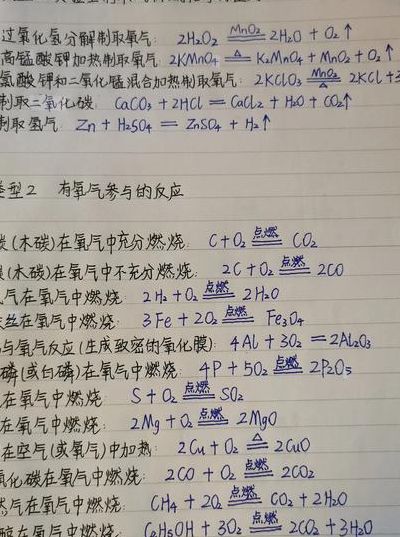 过氧化氢分解制取氧气: 2H₂O₂ =MnO₂= 2H₂O + O₂↑
高锰酸钾加热制取氧气: 2KMnO₄ =△= K₂MnO₄ + MnO₂ + O₂↑
氯酸钾和二氧化锰混合加热制取氧气: 2KClO₃ =MnO₂/△= 2KCl + 3
制取二氧化碳: CaCO₃ + 2HCl = CaCl₂ + H₂O + CO₂↑
制取氢气 Zn + H₂SO₄ = ZnSO₄ + H₂↑
类型2 有氧气参与的反应
(木碳)在氧气中充分燃烧: C + O₂ =点燃= CO₂
(木碳)在氧气中不充分燃烧: 2C + O₂ =点燃= 2CO
气在氧气中燃烧 2H₂ + O₂ =点燃= 2H₂O
丝在氧气中燃烧: 3Fe + 2O₂ =点燃= Fe₃O₄
与氧气反应(生成致密的氧化膜): 4Al + 3O₂ = 2Al₂O₃
磷(或白磷)在氧气中燃烧: 4P + 5O₂ =点燃= 2P₂O₅
在氧气中燃烧: S + O₂ =点燃= SO₂
在氧气中燃烧: 2Mg + O₂ =点燃= 2MgO
在空气(或氧气)中加热: 2Cu + O₂ =△= 2CuO
氧化碳在氧气中燃烧: 2CO + O₂ =点燃= 2CO₂
然气在氧气中燃烧: CH₄ + 2O₂ =点燃= CO₂ + 2H₂O
醇在氧气中燃烧 C₂H₅OH + 3O₂ =点燃= 2CO₂ + 3H₂O